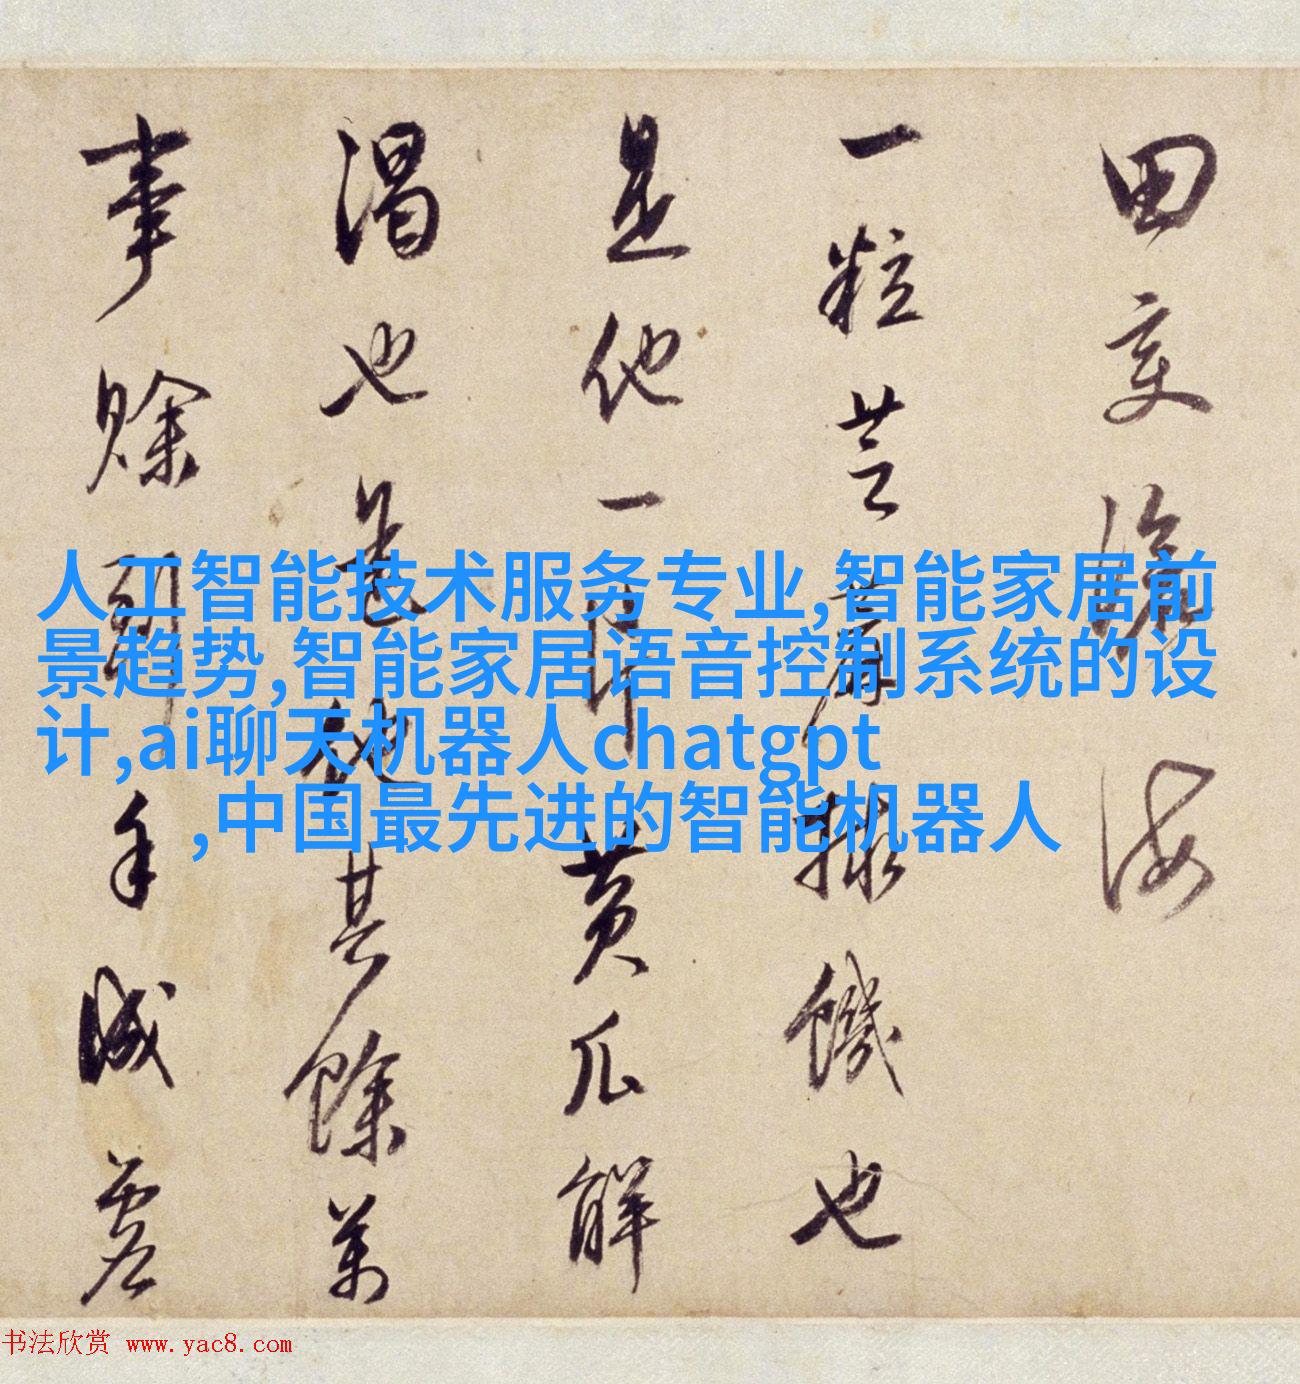 田变滄海
一粒芝麻捄饑也
是他一黄瓜解
渴也是他其餘萬
事賒手
人工智能技术服务专业,智能家居前
景趋势,智能家居语音控制系统的设
计,ai聊天机器人chatgpt
,中国最先进的智能机器人
书法欣赏 www.yac8.com